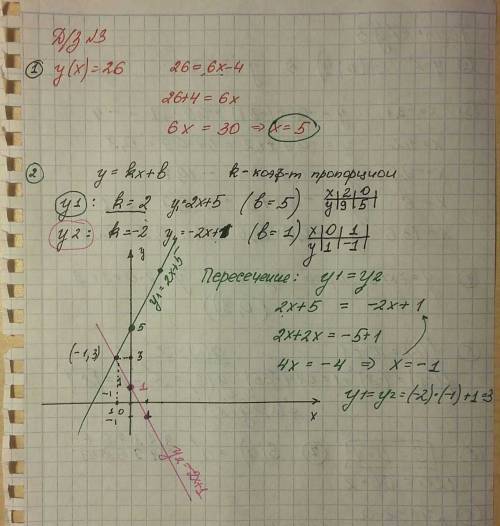 Д/З №3
① y(x)=26 26 = 6x-4
26+4 = 6x
6x = 30 ⇒ x=5
② y = kx+b k - коэф-т пропорции
y1: k=2 y=2x+5 (b=5) x 2 0
y 9 5
y2: k=-2 y=-2x+1 (b=1) x 0 1
y 1 -1
Пересечение: y1=y2
2x+5 = -2x+1
2x+2x = -5+1
4x = -4 ⇒ x=-1
y1=y2=(-2)·(-1)+1=3
y
y1=2x+5
5
(-1,3) 3
1
-1 0 1 x
-1
y2=-2x+1